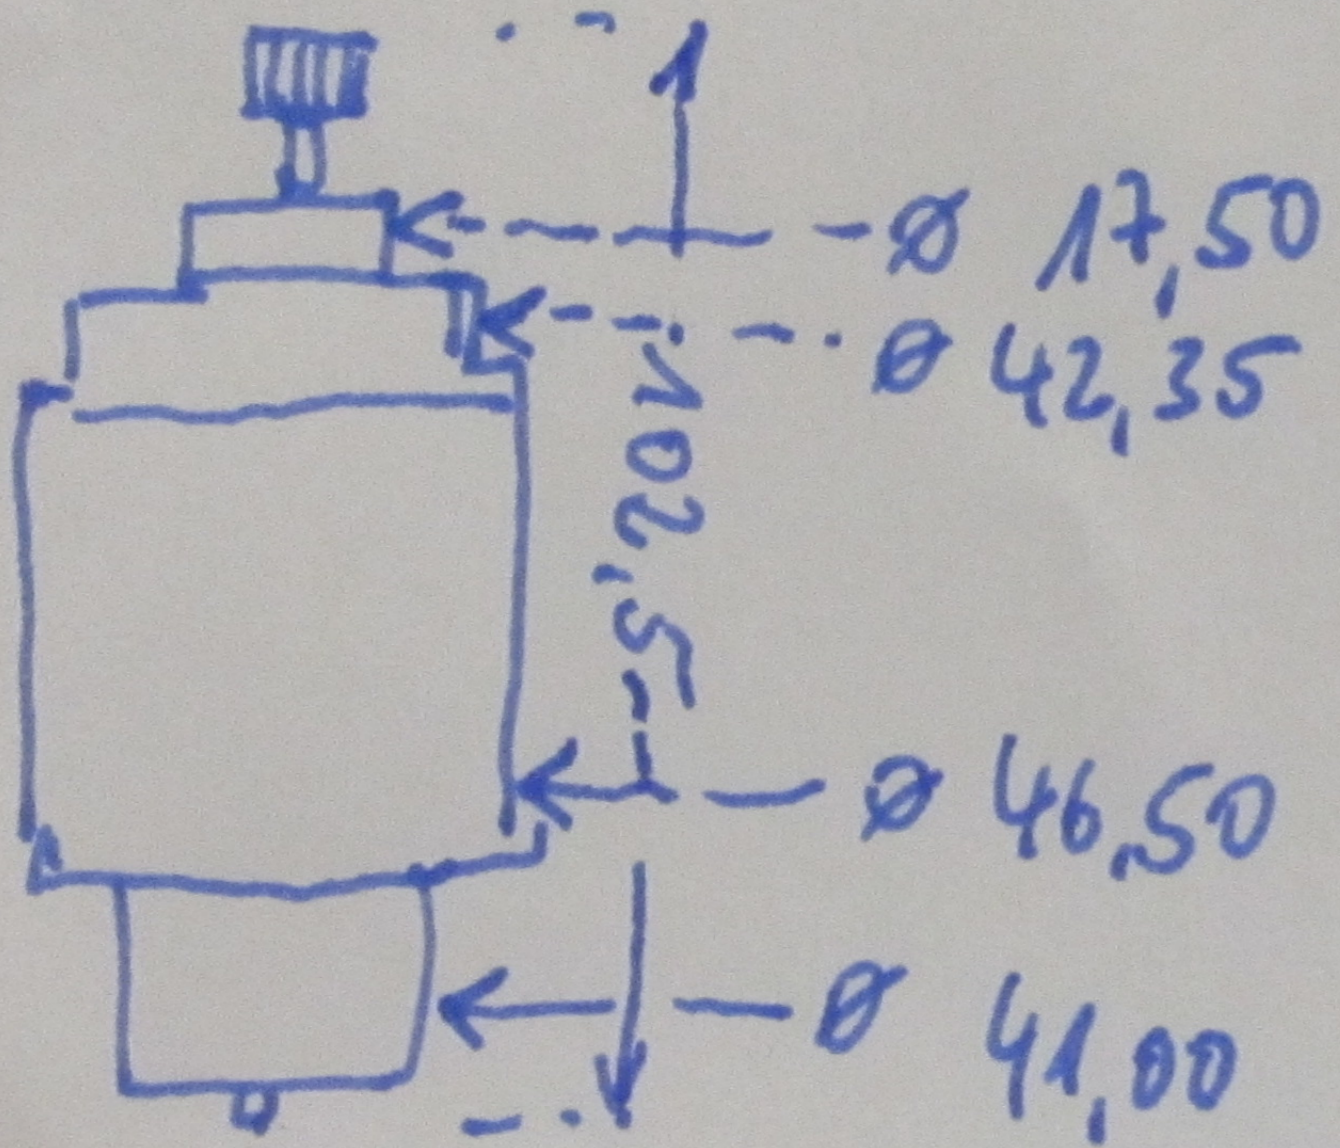 Ø 17,50
Ø 42,35
102,5
Ø 46,50
Ø 41,00